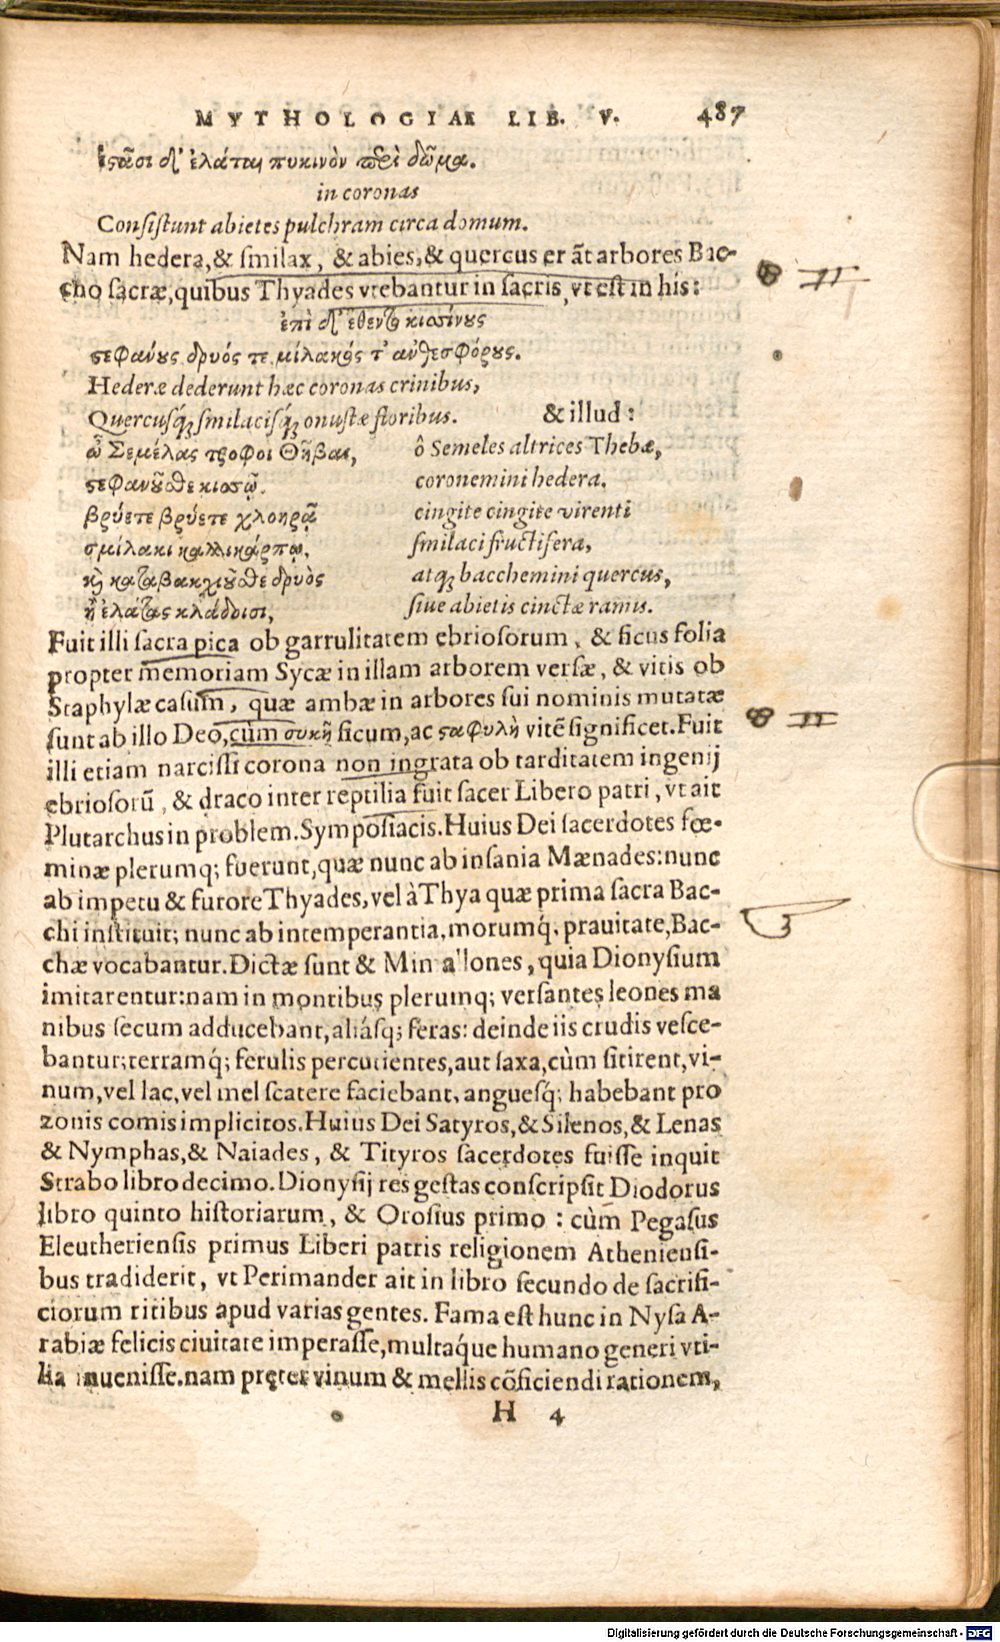 MYTHOLOGIAE LIB. V. 487
ἑςᾶσι δ' ἐλάται πυκινὸν περὶ δῶμα.
in coronas
Consistunt abietes pulchram circa domum.
Nam hedera,& smilax, & abies,& quercus erāt arbores Bac-
cho sacræ,quibus Thyades vtebantur in sacris, vt est in his:
ἐπὶ δ' ἔθεντο κισσίνους
ςεφάνους δρυός τε μίλακός τ' ἀνθεσφόρους.
Hederæ dederunt hæc coronas crinibus,
Quercusq́; smilacisq́; onustæ floribus. & illud:
ὦ Σεμέλας τροφοὶ Θῆβαι, ô Semeles altrices Thebæ,
ςεφανοῦσθε κισσῷ. coronemini hedera.
βρύετε βρύετε χλοηρᾷ cingite cingite virenti
σμίλακι καλλικάρπῳ, smilaci fructifera,
καὶ καταβακχιοῦσθε δρυὸς atq; bacchemini quercus,
ἢ ἐλάτας κλάδοισι, siue abietis cinctæ ramis.
Fuit illi sacra pica ob garrulitatem ebriosorum, & ficus folia
propter memoriam Sycæ in illam arborem versæ, & vitis ob
Staphylæ casum, quæ ambæ in arbores sui nominis mutatæ
sunt ab illo Deo,cùm συκῆ ficum,ac ςαφυλὴ vitē significet.Fuit
illi etiam narcissi corona non ingrata ob tarditatem ingenij
ebriosorū, & draco inter reptilia fuit sacer Libero patri, vt ait
Plutarchus in problem.Symposiacis.Huius Dei sacerdotes fœ-
minæ plerumq; fuerunt,quæ nunc ab insania Mænades:nunc
ab impetu & furore Thyades, vel à Thya quæ prima sacra Bac-
chi instituit; nunc ab intemperantia, morumq́; prauitate,Bac-
chæ vocabantur.Dictæ sunt & Mimallones, quia Dionysium
imitarentur:nam in montibus plerumq; versantes leones ma
nibus secum adducebant,aliásq; feras: deinde iis crudis vesce-
bantur;terramq́; ferulis percutientes,aut saxa,cùm sitirent,vi-
num,vel lac,vel mel scatere faciebant, anguesq́; habebant pro
zonis comis implicitos.Huius Dei Satyros,& Silenos,& Lenas
& Nymphas,& Naiades, & Tityros sacerdotes fuisse inquit
Strabo libro decimo.Dionysij res gestas conscripsit Diodorus
libro quinto historiarum, & Orosius primo : cùm Pegasus
Eleutheriensis primus Liberi patris religionem Atheniensi-
bus tradiderit, vt Perimander ait in libro secundo de sacrifi-
ciorum ritibus apud varias gentes. Fama est hunc in Nysa A-
rabiæ felicis ciuitate imperasse,multáque humano generi vti-
lia inuenisse.nam pręter vinum & mellis cōficiendi rationem,
H 4
Digitalisierung gefördert durch die Deutsche Forschungsgemeinschaft - DFG